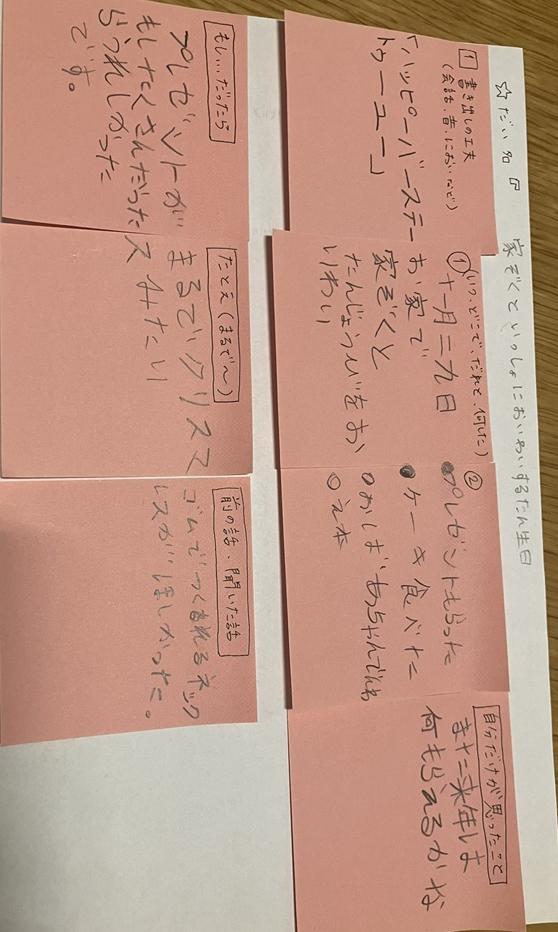 ☆だい名『 家ぞくといっしょにおいわいするたん生日
1 書き出しの工夫
(会話、音、においなど)
「ハッピーバースデー
トゥーユー」
① (いつ、どこで、だれと、何した)
十一月二九日
お家で
家ぞくと
たんじょうびをお
いわい
②
●プレゼントもらった
●ケーキ食べた
○おばあちゃんでんわ
○え本
自分だけが思ったこと
また来年は
何もらえるかな
もし…だったら
プレゼントが
もしたくさんだった
らうれしかった
です。
たとえ(まるで〜)
まるでクリスマ
スみたい
前の話・聞いた話
ゴムでつくられるネック
レスがほしかった。